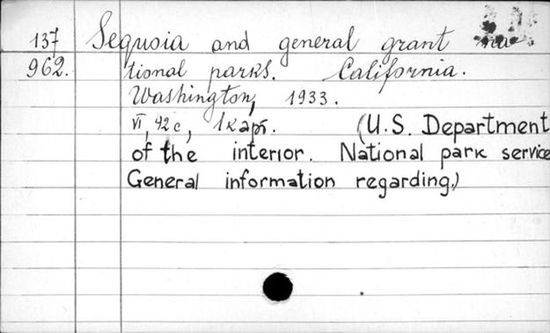 137 Sequoia and general grant na-
962. tional parks. California.
Washington, 1933.
VI, 42 c, 1 карт. (U.S. Department
of the interior. National park service
General information regarding.)